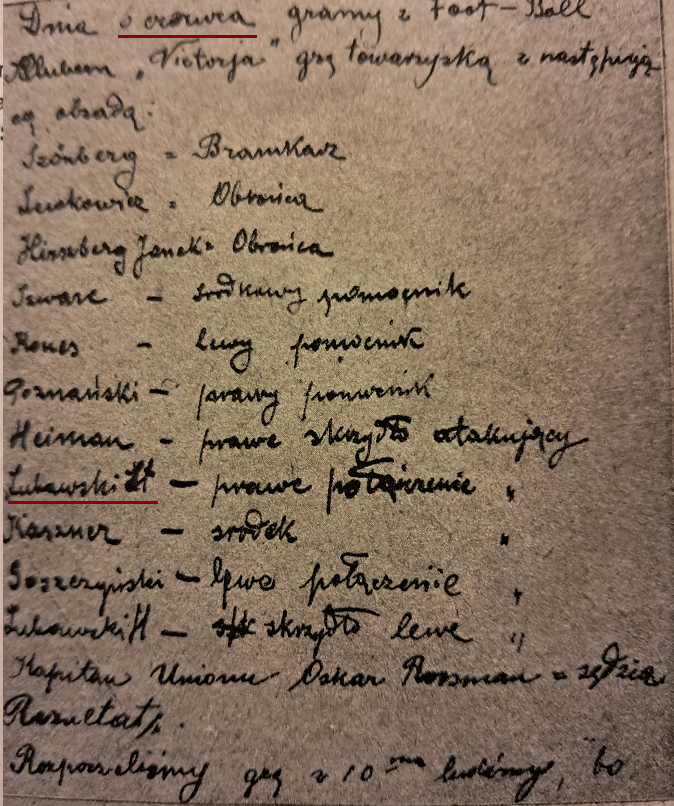 Dnia 6 czerwca gramy z Foot-Ball
Klubem „Victorja" grę towarzyską z następują
cą obsadą:
Szönberg = Bramkarz
Lwokowicz = Obrońca
Hirszberg Janek = Obrońca
Szwarc - środkowy pomocnik
Rones - lewy pomocnik
Poznański - prawy pomocnik
Heiman - prawe skrzydło atakujący
Lubawski - prawe połączenie "
Kaszner - środek "
Goszczyński - lewe połączenie "
Lubawski H - skrzydło lewe "
Kapitan Unionu Oskar Rossman = sędzia
Rezultat
Rozpoczeliśmy grę z 10 ma ludźmy, bo